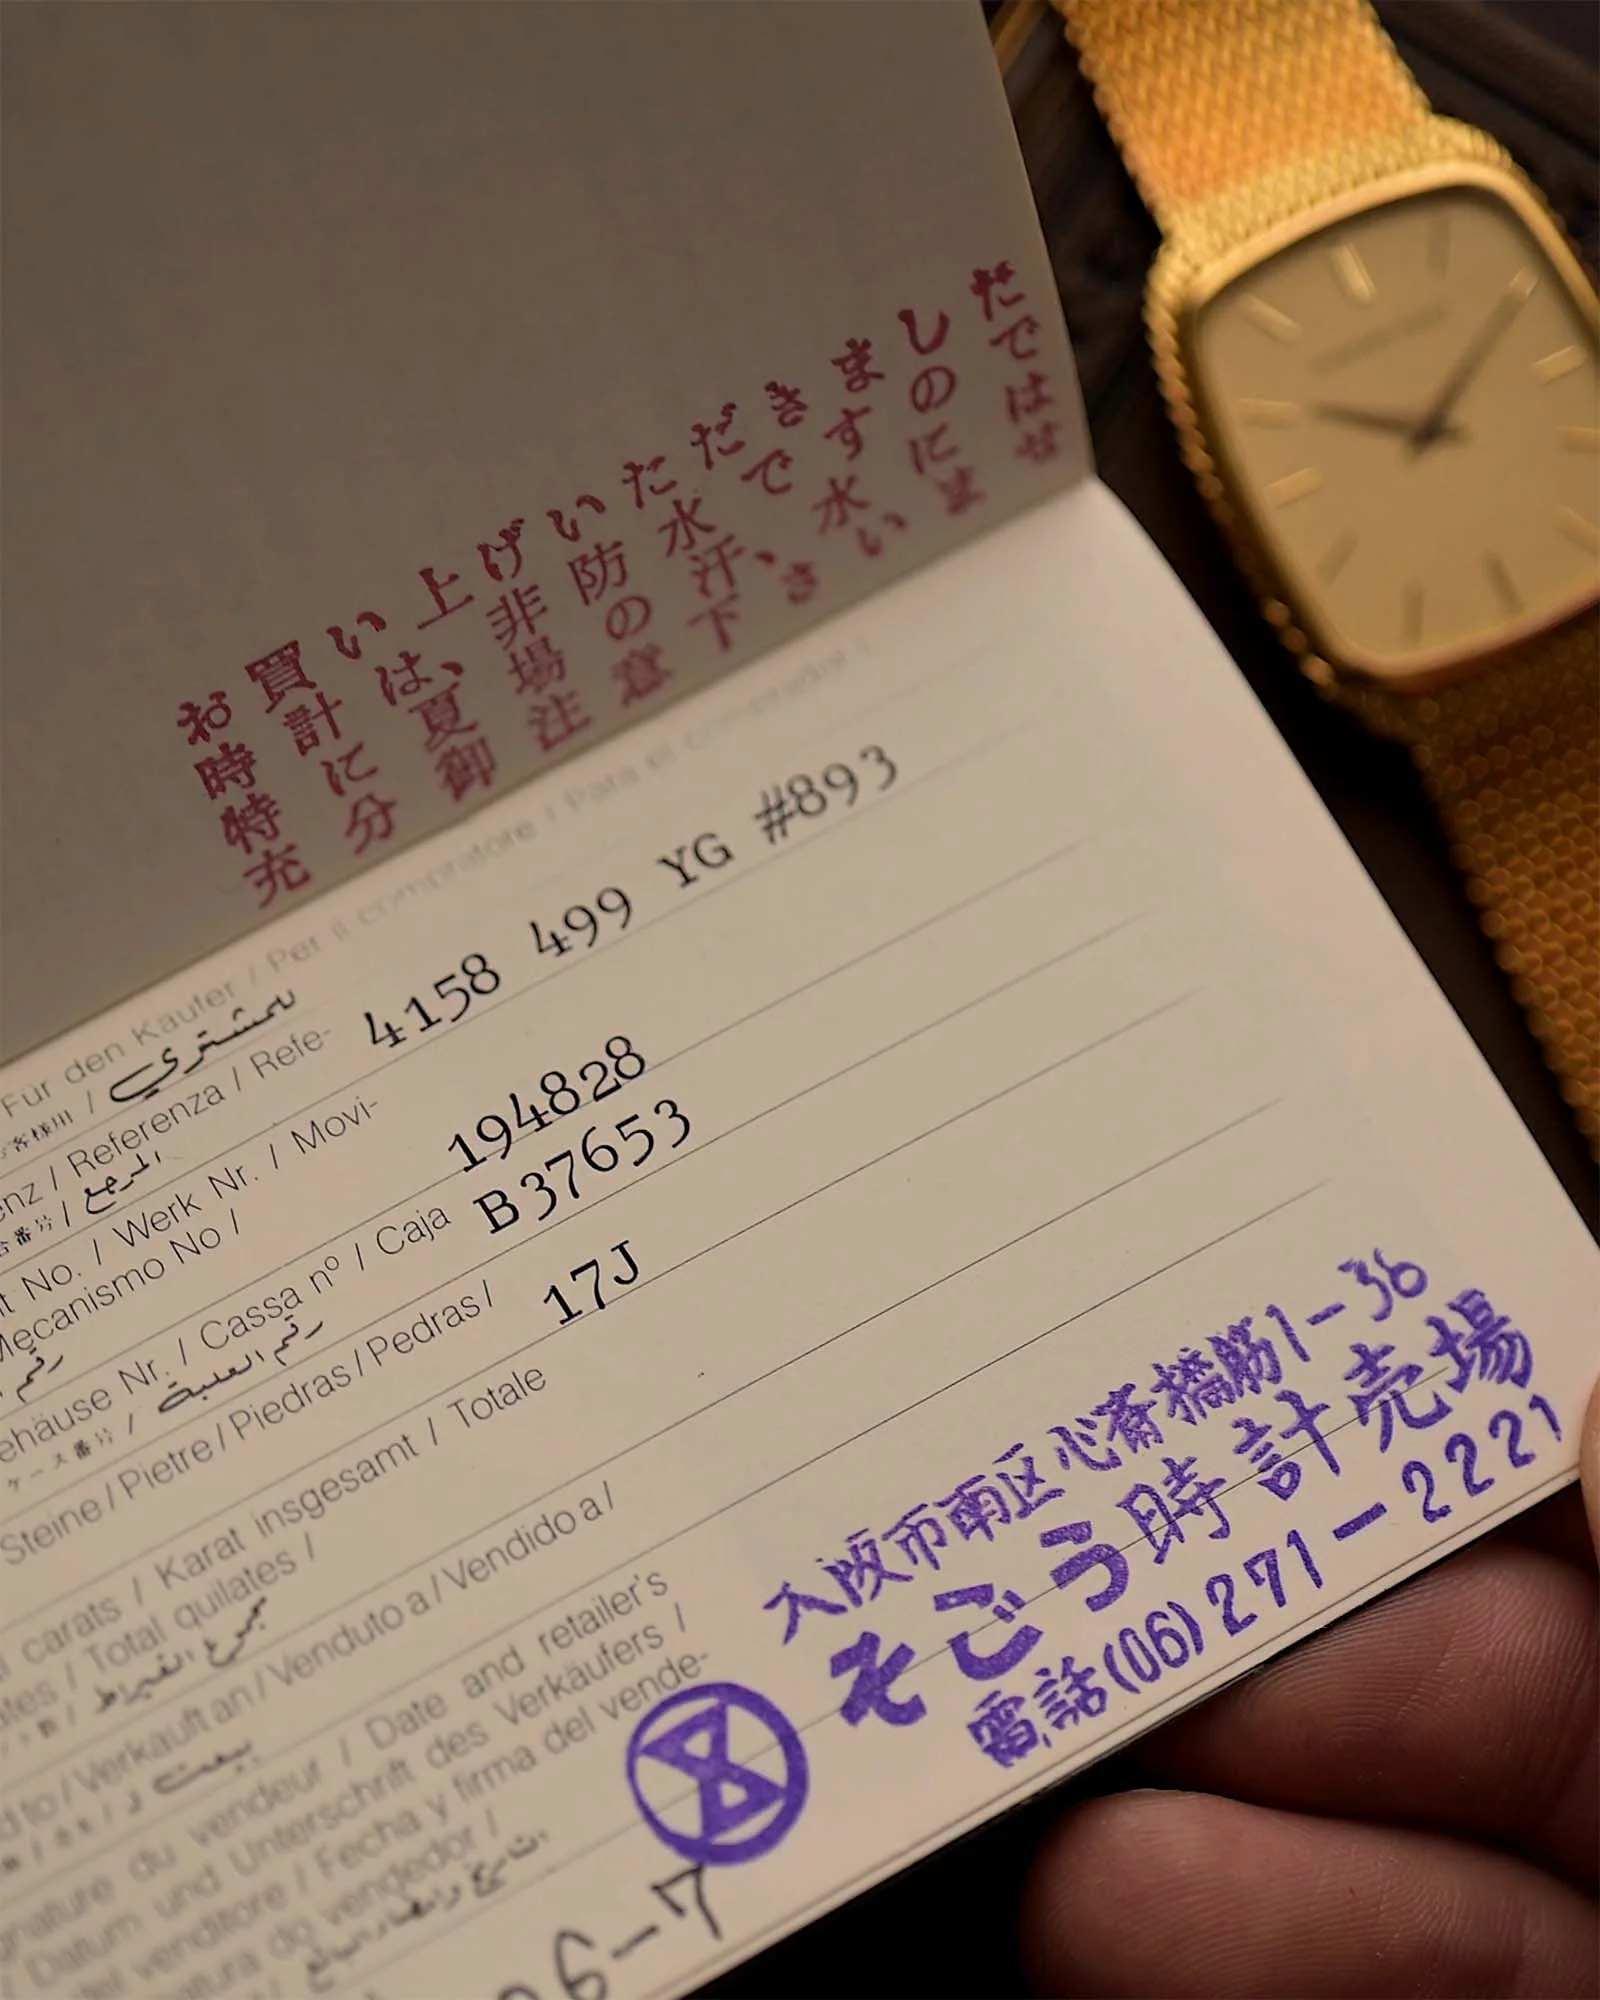 お買い上げいただきました
時計は、非防水ですので
特に夏場の汗、水には
充分御注意下さいませ
Für den Käufer / Per il compratore / Para el comprador /
お客様用 / للمشتري
enz / Referenza / Refe-
番号 / المرجع
4158 499 YG #893
t No. / Werk Nr. / Movi-
Mecanismo No /
رقم
194828
ehäuse Nr. / Cassa nº / Caja
ケース番号 / رقم العلبة
B37653
Steine / Pietre / Piedras / Pedras /
17J
l carats / Karat insgesamt / Totale
ates / Total quilates /
مجموع القيراط
d to / Verkauft an / Venduto a / Vendido a /
بيعت
gnature du vendeur / Date and retailer's
/ Datum und Unterschrift des Verkäufers /
del venditore / Fecha y firma del vende-
natura do vendedor /
大阪市南区心斎橋筋1-36
そごう時計売場
電話(06)271-2221
06-7